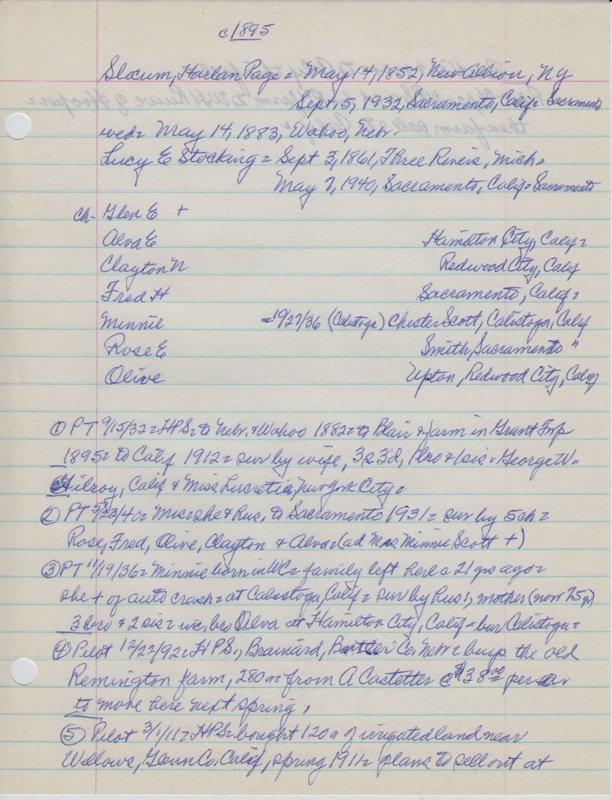 c1895
Slocum, Harlan Page = May 14, 1852, New Albion, NY
Sept. 5, 1932, Sacramento, Calif = Sacramento
wed = May 14, 1883, Wahoo, Nebr.
Lucy E Stocking = Sept 3, 1861, Three Rivers, Mich =
May 7, 1940, Sacramento, Calif = Sacramento
ch - Glen E +
Alva E Hamilton City, Calif =
Clayton N Redwood City, Calif
Fred H Sacramento, Calif =
Minnie = 1927/36 (Calistoga) Chester Scott, Calistoga, Calif
Rose E Smith, Sacramento "
Olive Upton, Redwood City, Calif
① PT 9/15/32 = HPS = to Nebr. & Wahoo 1882 = to Blair & farm in Grant Twp
1895 = to Calif 1912 = sur by wife, 3s 3d, 1 bro & 1 sis = George W =
Gilroy, Calif & Miss Lucretia, New York City =
② PT 5/23/40 = Mrs = she & hus, to Sacramento 1931 = sur by 5 ch =
Rose, Fred, Olive, Clayton & Alva = (ad Mrs Minnie Scott +)
③ PT 11/19/36 = Minnie born in WC = family left here a 21 yrs ago =
she + of auto crash = at Calistoga, Calif = sur by hus, mother (now 75 y)
3 bro & 2 sis = inc. bro Alva at Hamilton City, Calif = bur Calistoga =
④ Pilot 12/22/92 = HPS, Brainard, Butler Co. Nebr = buys the old
Remington farm, 280 a = from A Castetter @ $38.00 per ar
to move here next spring,
⑤ Pilot 3/1/11 = HPS = bought 120 a of irrigated land near
Willows, Glenn Co. Calif, spring 1911 = plans to sell out at